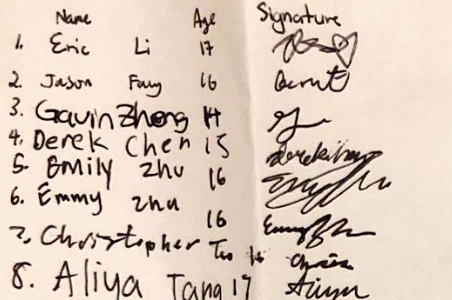 Name Age Signature
1. Eric Li 17
2. Jason Fang 16
3. Gavin Zhong 14
4. Derek Chen 15
5. Emily Zhu 16
6. Emmy Zhu 16
7. Christopher 16 Chris
8. Aliya Tang 17